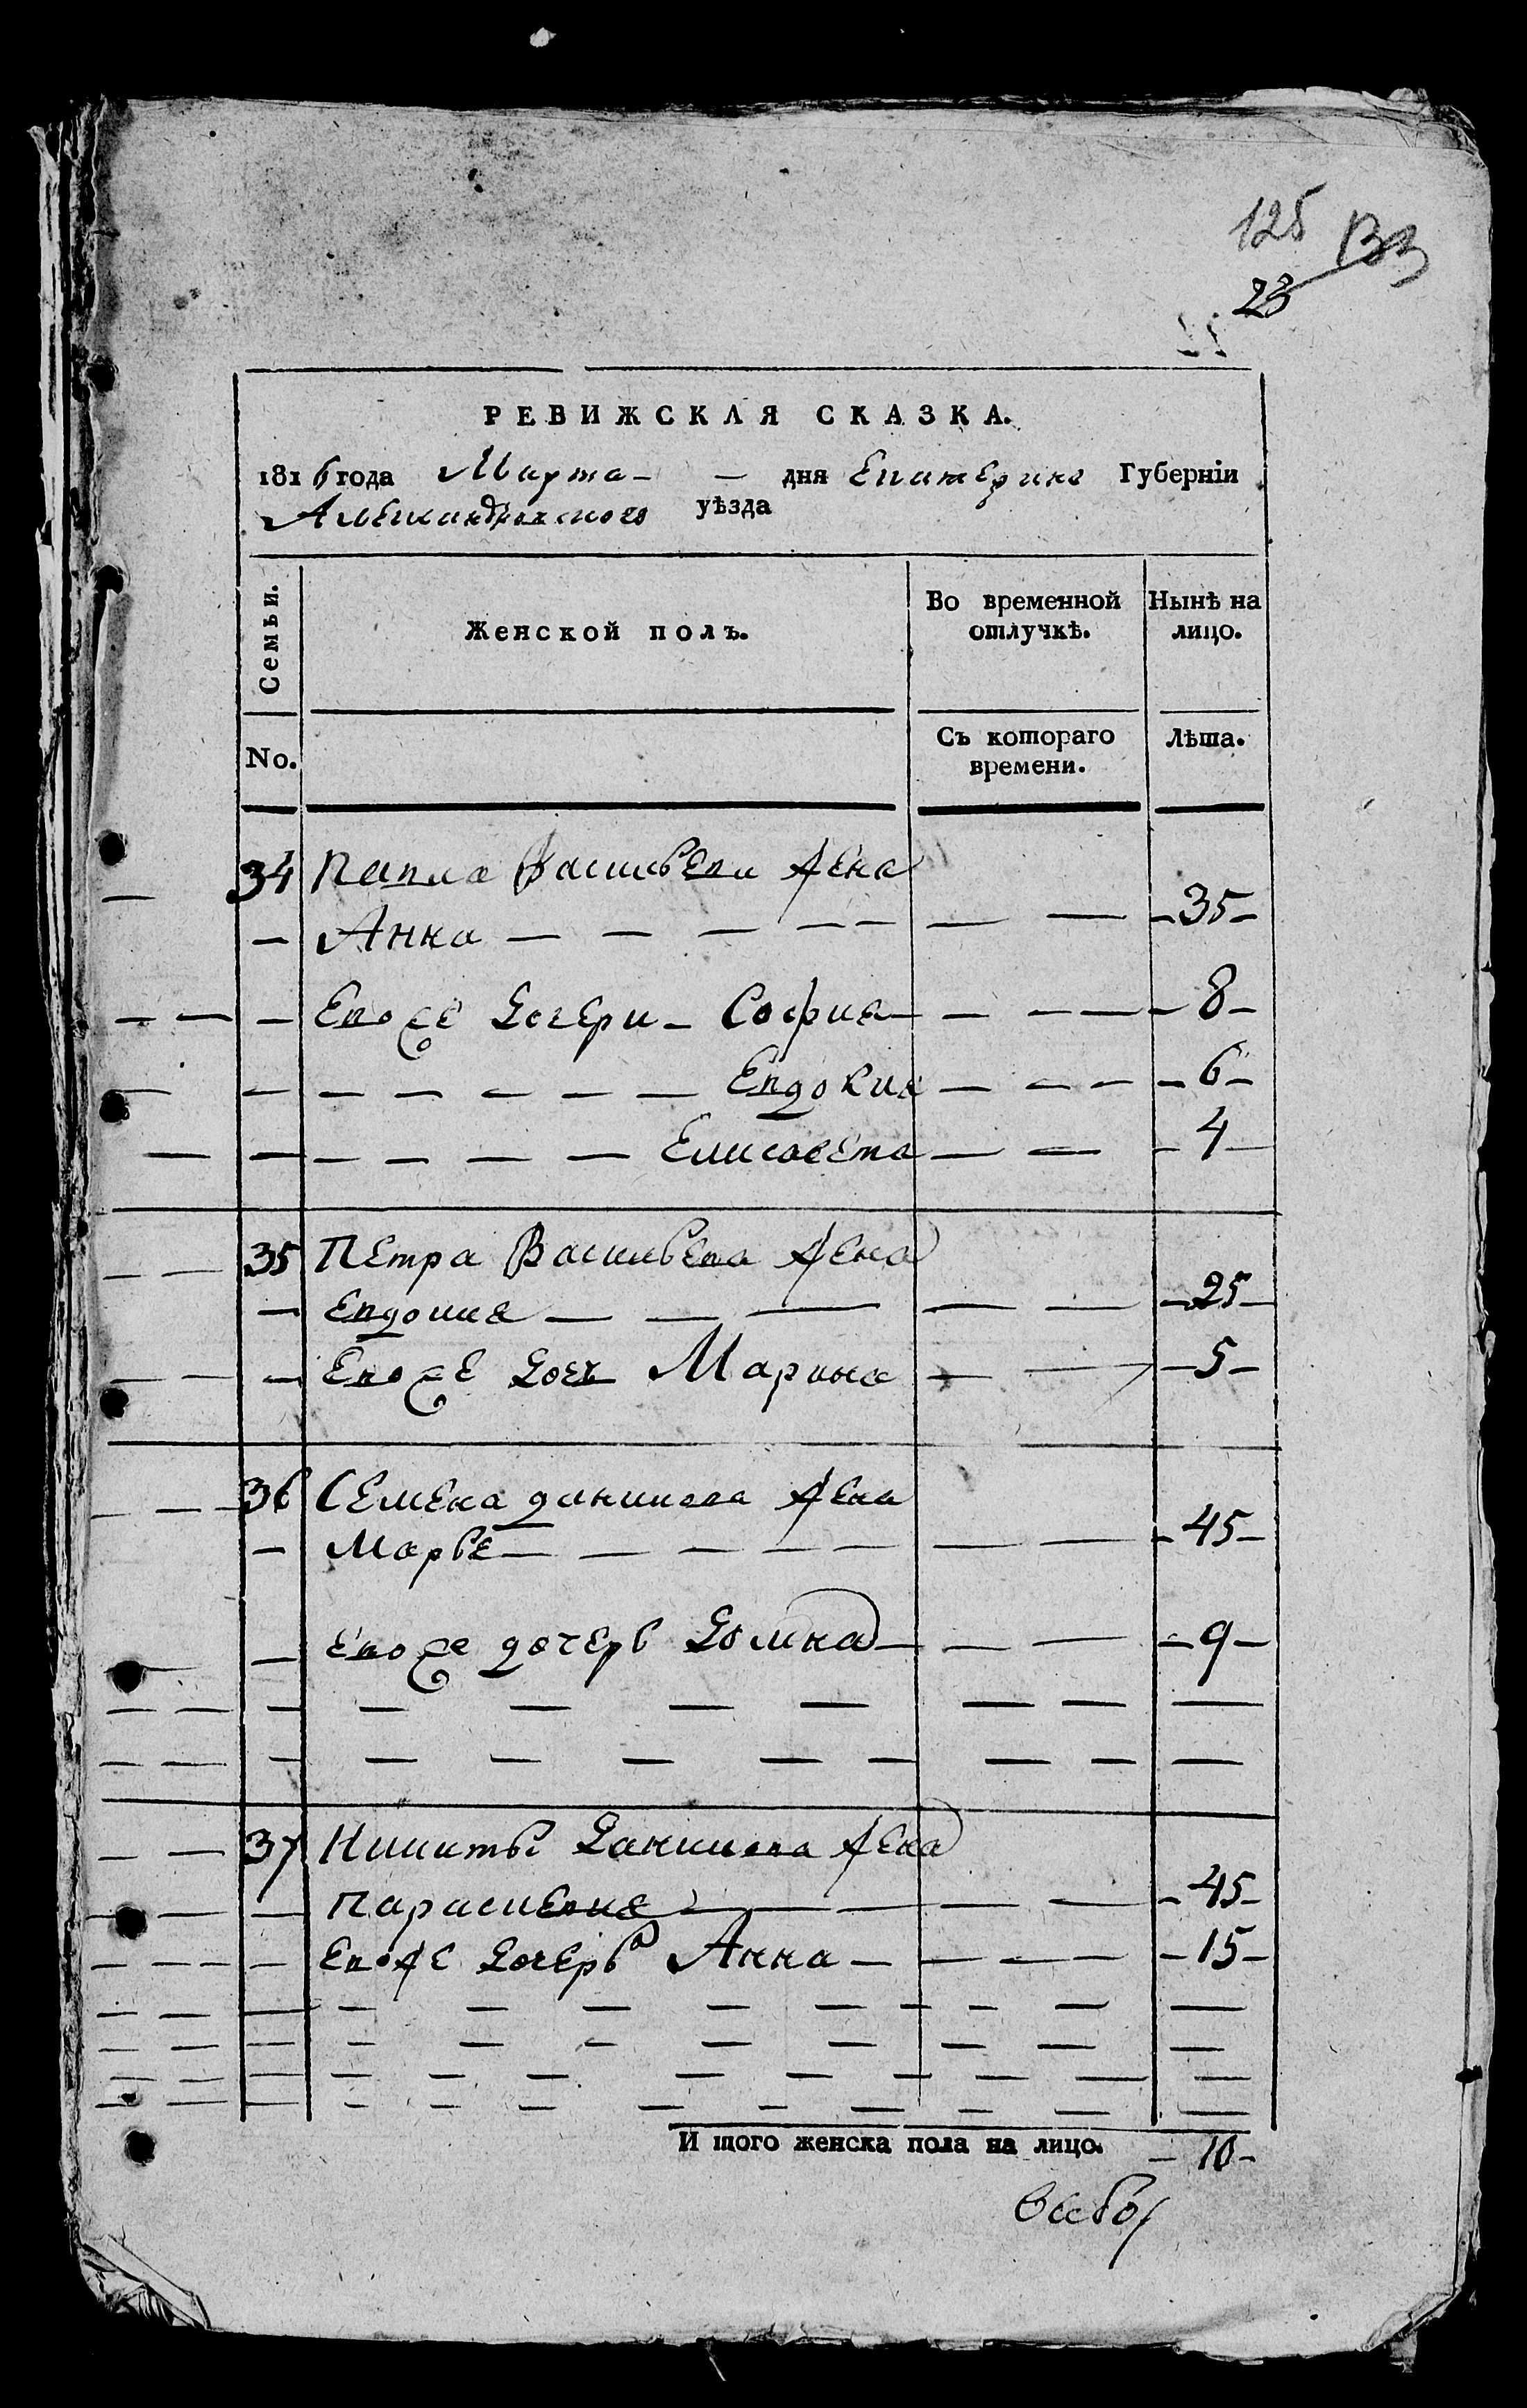 125 133
23
РЕВИЖСКАЯ СКАЗКА.
1816 года Марта - - дня Екатерино Губерніи
Александровского уѣзда
Семьи. Женской полъ. Во временной отлучкѣ. Нынѣ на лицо.
No. Съ котораго времени. Лѣта.
34 Павла Васильева жена
— Анна — — — — — — — -35-
— Евоже дочери - София — — — - 8 -
— — — — — — — Евдокия — — — - 6 -
— — — — — — Елисавета — — - 4 -
35 Петра Васильева жена
— Евдокия — — — — — -25-
— Евоже дочь Марина — — - 5 -
36 Семена данилова жена
— Марья — — — — — — — - 45 -
— евоже дочерь Домна — — — - 9 -
37 Никиты Данилова жена
— Парасковия — — — — - 45 -
— Евоже дочерь Анна — — — — - 15 -
И того женска пола на лицо. - 10 -